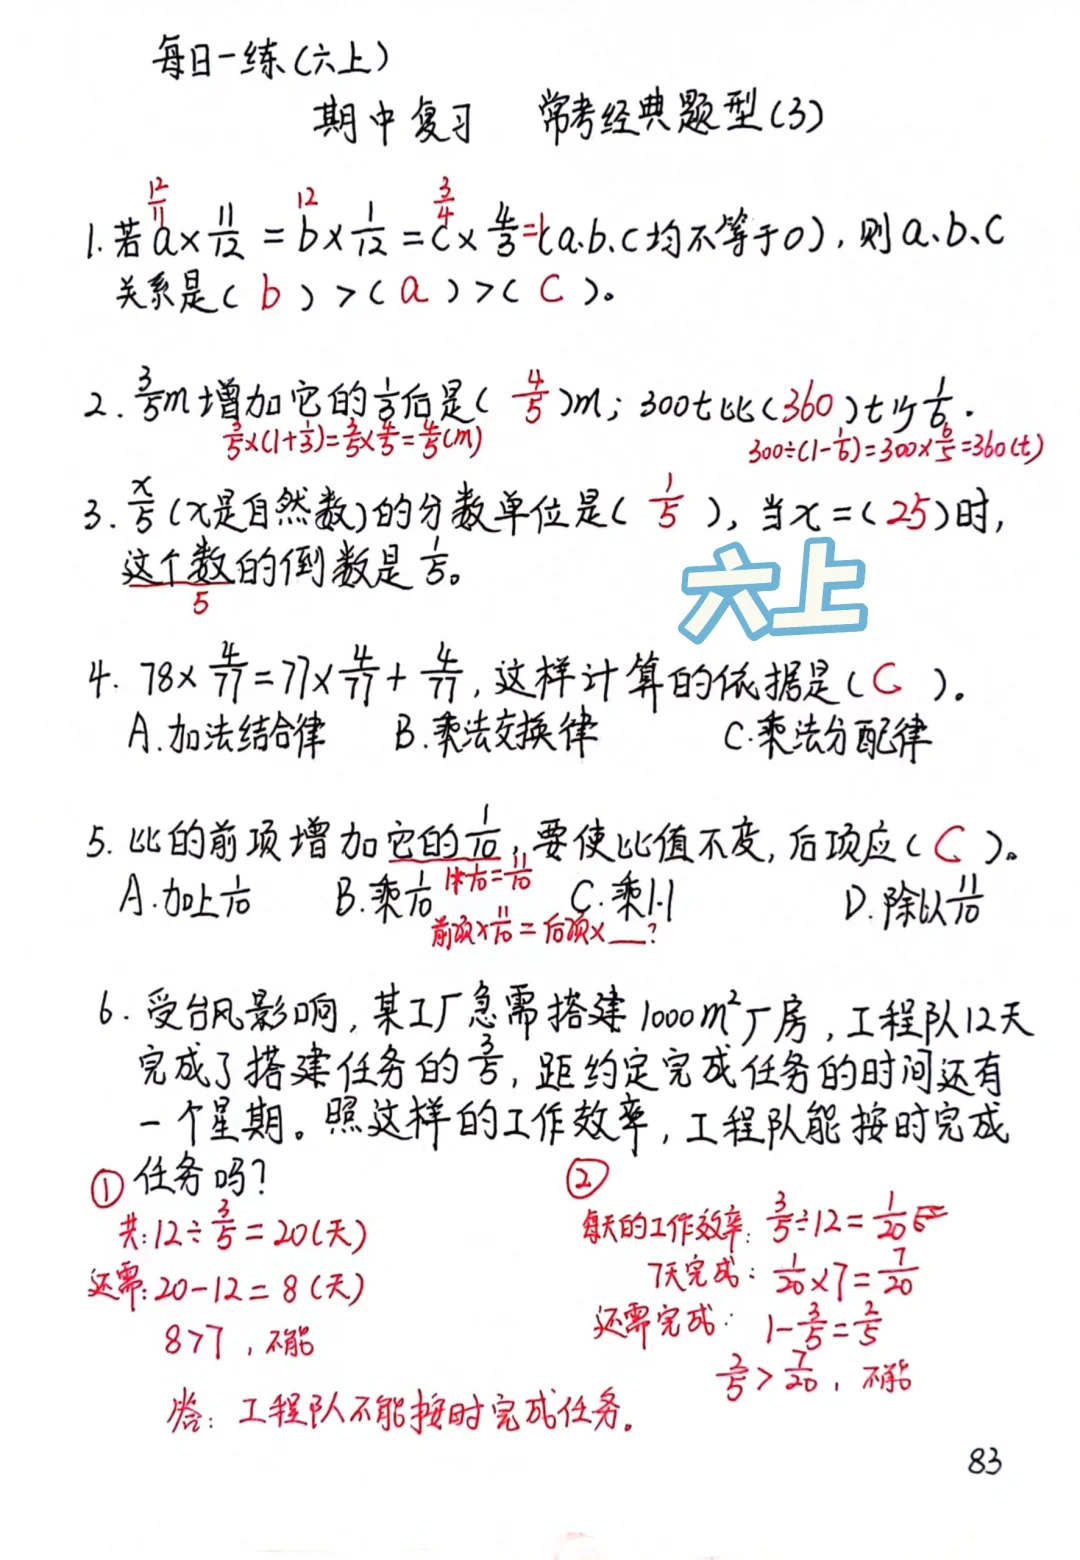 每日一练(六上)
期中复习 常考经典题型(3)
12/11 12 3/4
1.若a×11/12=b×1/12=c×4/3=1(a.b.c均不等于0),则a、b、c
关系是(b)>(a)>(c)。
2.3/5m增加它的1/3后是(4/5)m;300t比(360)t少1/6.
3/5×(1+1/3)=3/5×4/3=4/5(m) 300÷(1-1/6)=300×6/5=360(t)
3.x/5(x是自然数)的分数单位是(1/5),当x=(25)时,
这个数的倒数是1/5。
5
六上
4.78×4/77=77×4/77+4/77,这样计算的依据是(C)。
A.加法结合律 B.乘法交换律 C.乘法分配律
5.比的前项增加它的1/10,要使比值不变,后项应(C)。
1+1/10=11/10
A.加上1/10 B.乘1/10 C.乘1.1 D.除以11/10
前项×11/10=后项×__?
6.受台风影响,某工厂急需搭建1000m²厂房,工程队12天
完成了搭建任务的3/5,距约定完成任务的时间还有
一个星期。照这样的工作效率,工程队能按时完成
任务吗?
①
共:12÷3/5=20(天)
还需:20-12=8(天)
8>7,不能
②
每天的工作效率:3/5÷12=1/20
7天完成:1/20×7=7/20
还需完成:1-3/5=2/5
2/5>7/20,不能
答:工程队不能按时完成任务。
83